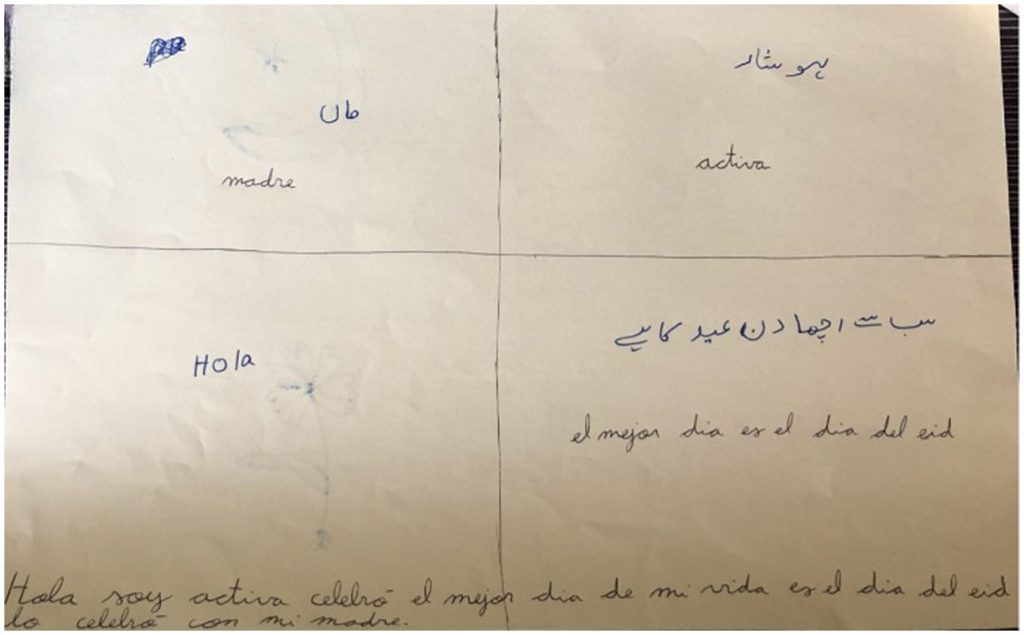 ماں
madre
ہوشار
activa
Hola
سب سے اچھا دن عید کا ہے
el mejor dia es el dia del eid
Hola soy activa celebró el mejor dia de mi vida es el dia del eid
lo celebró con mi madre.